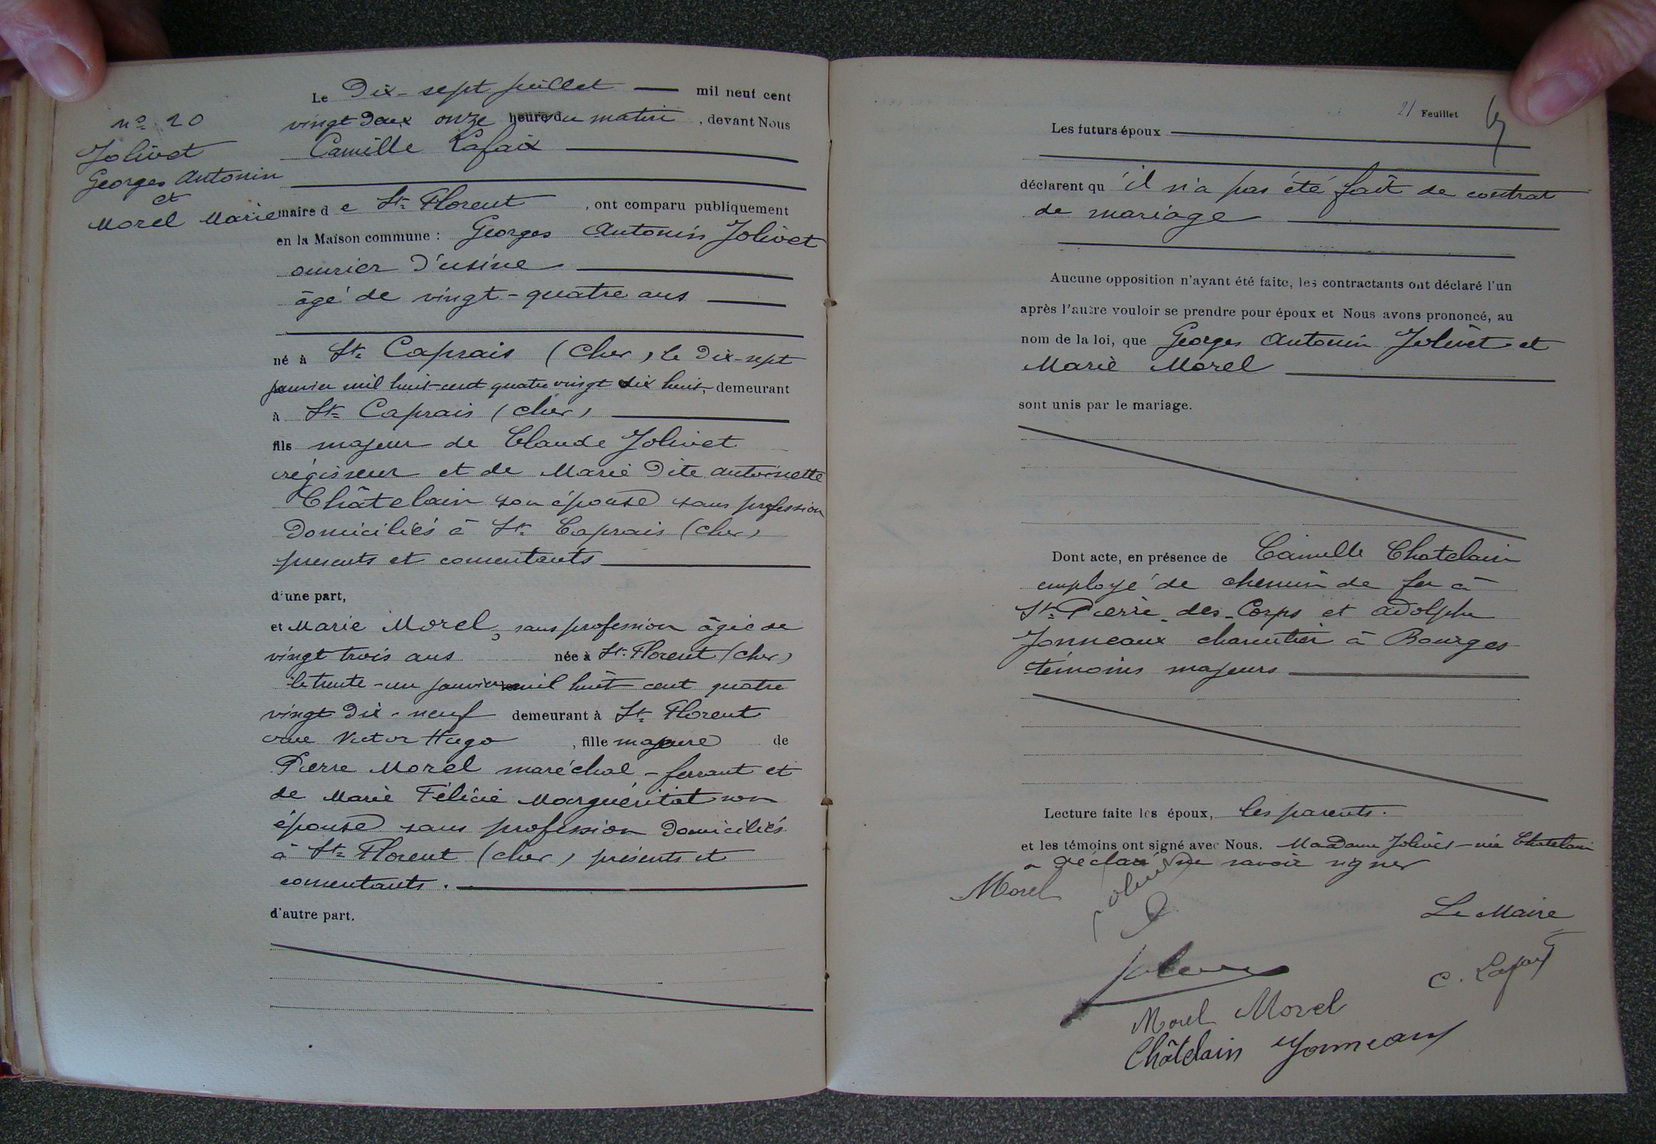 nº 20
Jolivet
Georges Antonin
et
Morel Marie
Le Dix-sept juillet mil neuf cent
vingt deux onze heure du matin, devant Nous
Camille Lafaix
maire de St. Florent, ont comparu publiquement
en la Maison commune : Georges Antonin Jolivet
ouvrier d'usine
âgé de vingt-quatre ans
né à St. Caprais (Cher) le dix-sept
janvier mil huit cent quatre vingt dix huit, demeurant
à St. Caprais (Cher)
fils majeur de Claude Jolivet
régisseur et de Marie dite Antoinette
Châtelain son épouse sans profession
domiciliés à St. Caprais (Cher)
présents et consentants
d'une part,
et Marie Morel, sans profession âgée de
vingt trois ans née à St. Florent (Cher)
le trente-un janvier mil huit cent quatre
vingt dix-neuf demeurant à St. Florent
rue Victor Hugo, fille majeure de
Pierre Morel maréchal-ferrant et
de Marie Félicie Marguéritat son
épouse sans profession domiciliés
à St. Florent (Cher) présents et
consentants.
d'autre part.
21 Feuillet
Les futurs époux
déclarent qu'il n'a pas été fait de contrat
de mariage
Aucune opposition n'ayant été faite, les contractants ont déclaré l'un
après l'autre vouloir se prendre pour époux et Nous avons prononcé, au
nom de la loi, que Georges Antonin Jolivet et
Marie Morel
sont unis par le mariage.
Dont acte, en présence de Camille Chatelain
employé de chemin de fer à
St. Pierre-des-Corps et Adolphe
Jonneaux charcutier à Bourges
témoins majeurs
Lecture faite les époux, les parents.
et les témoins ont signé avec Nous. Madame Jolivet née Chatelain
a déclaré ne savoir signer
Morel Jolivet
Le Maire
C. Lafaix
Morel Morel
Châtelain Jonneaux